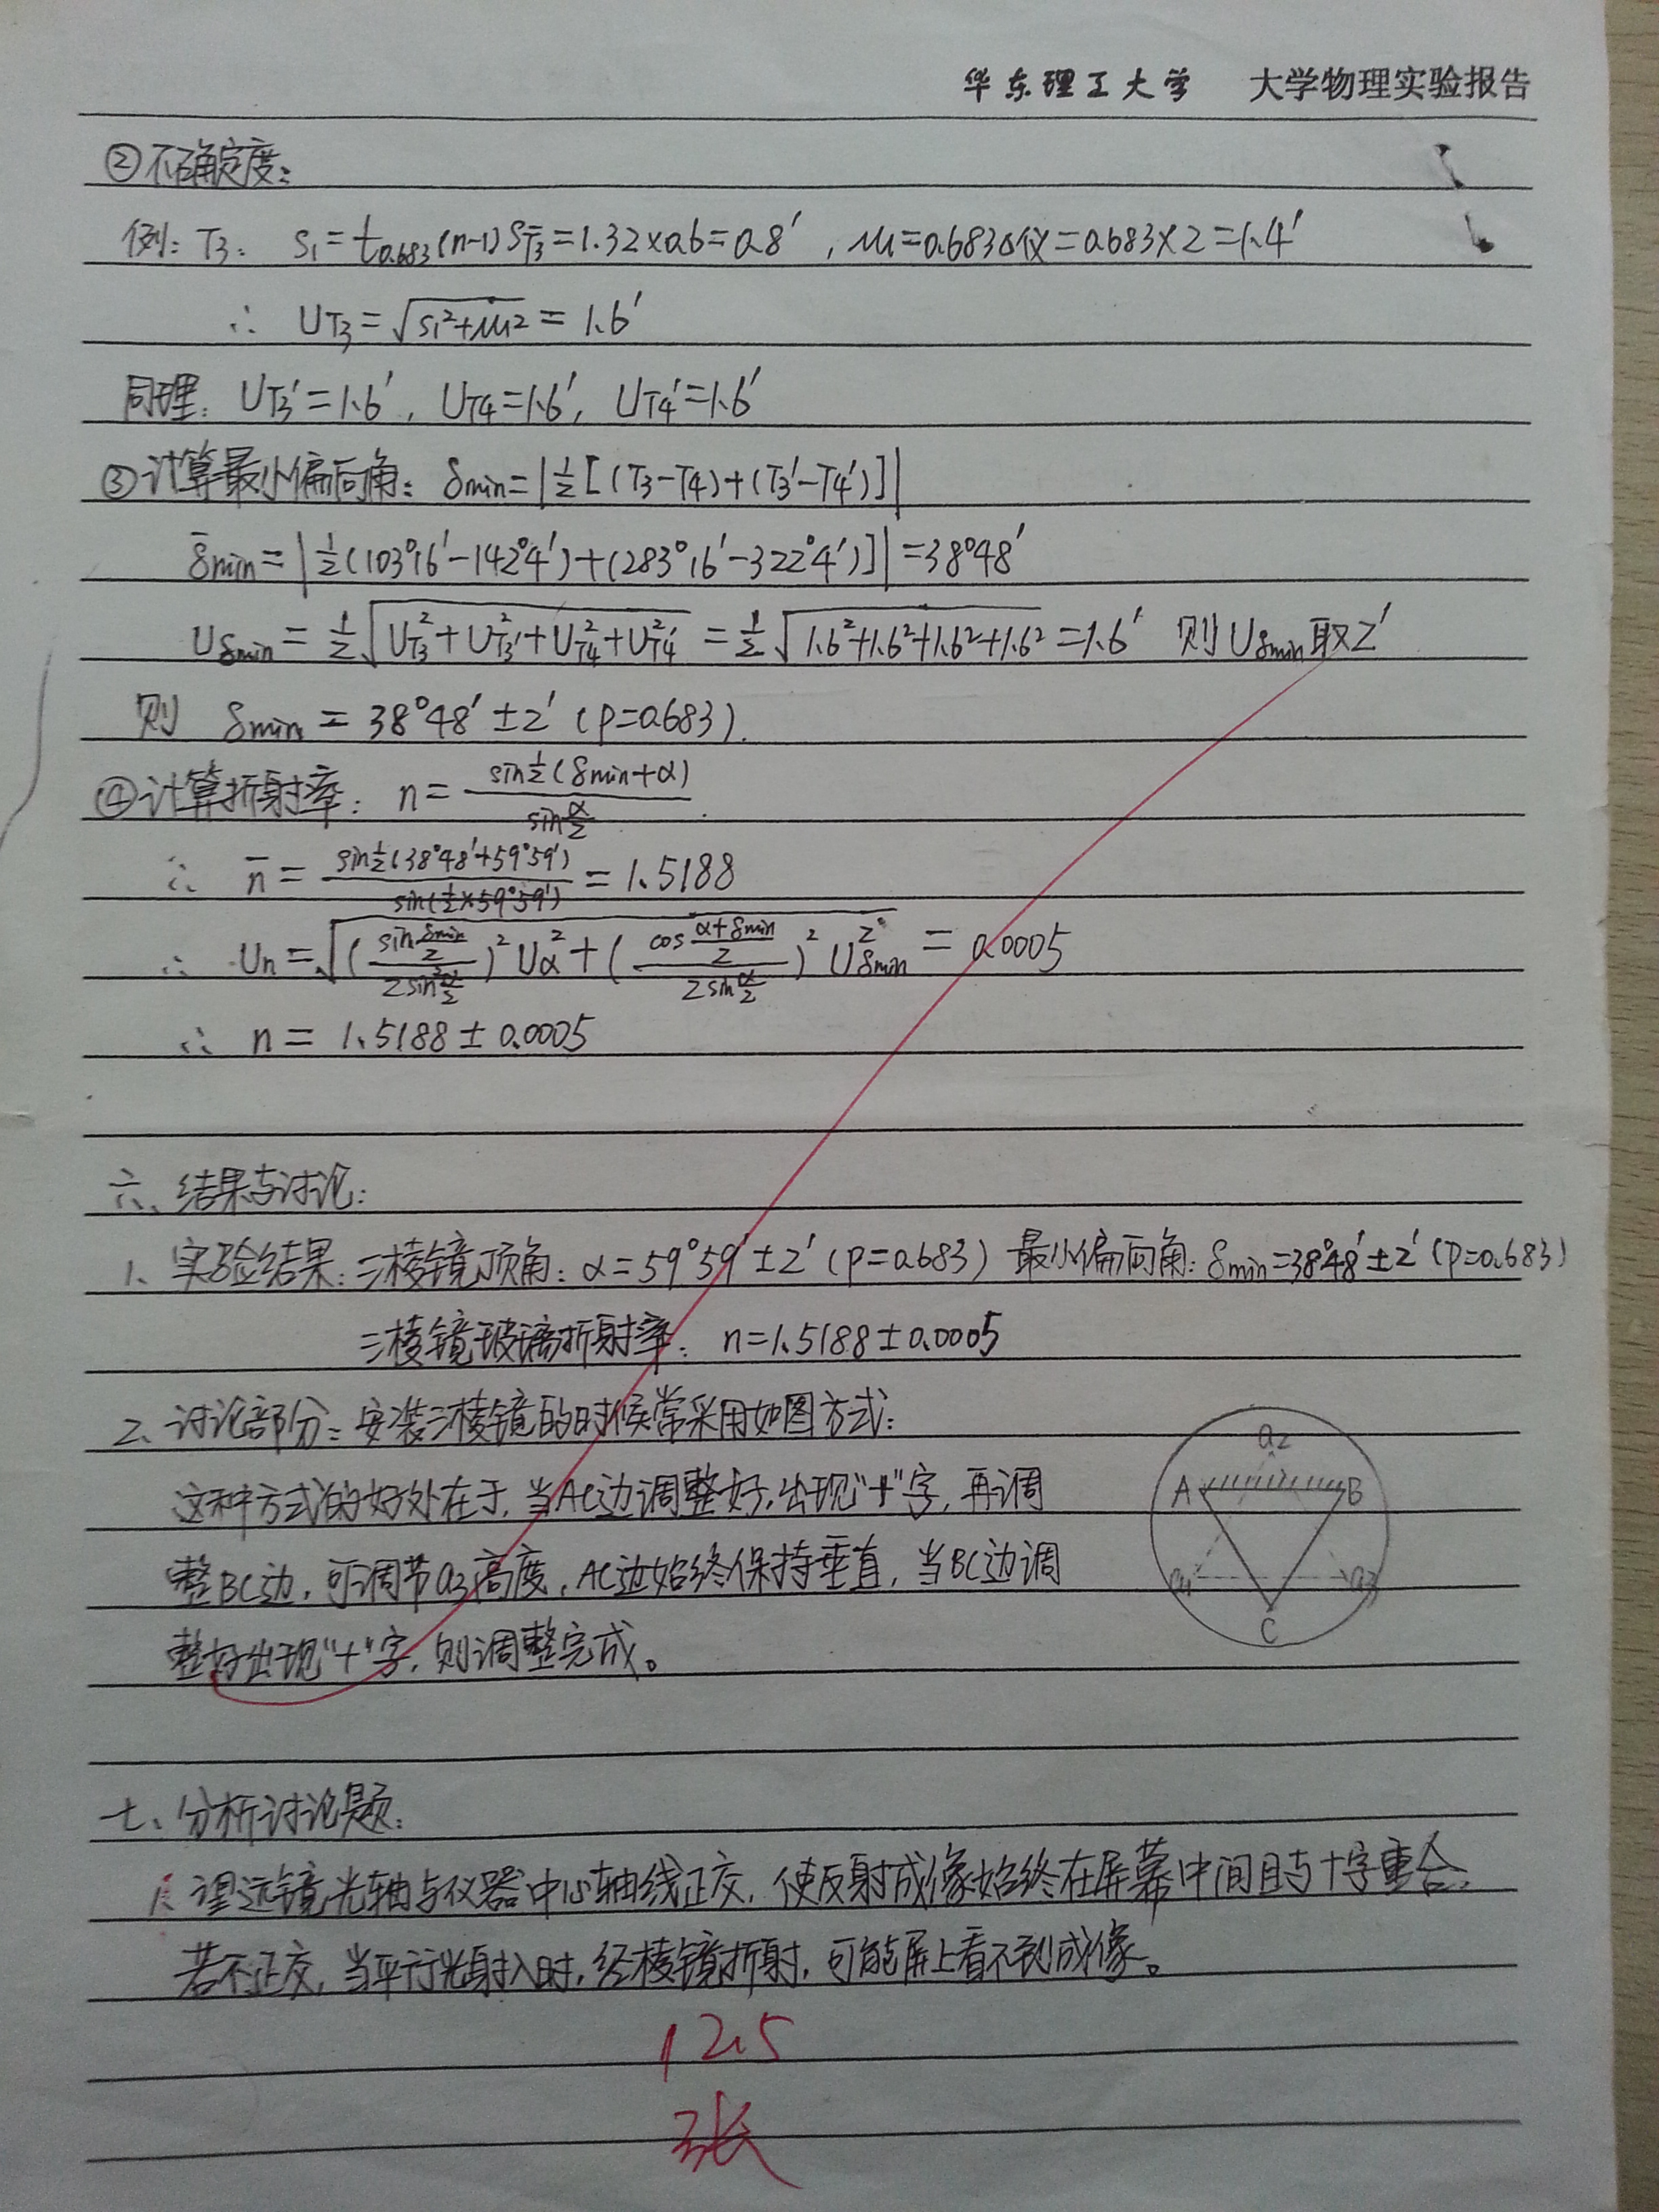 华东理工大学 大学物理实验报告
②不确定度：
例：T3： S1=t0.683(n-1)ST̄3=1.32×0.6=0.8′，u1=0.683Δ仪=0.683×2=1.4′
∴ UT3=√(S1²+u1²)=1.6′
同理：UT3′=1.6′，UT4=1.6′，UT4′=1.6′
③计算最小偏向角：δmin=|½[(T3-T4)+(T3′-T4′)]|
δ̄min=|½(103°16′-142°4′)+(283°16′-322°4′)]|=38°48′
Uδmin=½√(UT3²+UT3′²+UT4²+UT4′²)=½√(1.6²+1.6²+1.6²+1.6²)=1.6′ 则Uδmin取2′
则 δmin=38°48′±2′（P=0.683）.
④计算折射率：n=sin½(δmin+α)/sin(α/2)
∴ n̄=sin½(38°48′+59°59′)/sin(½×59°59′)=1.5188
∴ Un=√((sin(δmin/2)/2sin²(α/2))²Uα²+(cos((α+δmin)/2)/2sin(α/2))²Uδmin²)=0.0005
∴ n=1.5188±0.0005
六、结果与讨论：
1、实验结果：三棱镜顶角：α=59°59′±2′（P=0.683）最小偏向角：δmin=38°48′±2′（P=0.683）
三棱镜玻璃折射率：n=1.5188±0.0005
2、讨论部分：安装三棱镜的时候常采用如图方式：
这种方式的好处在于，当AC边调整好，出现“十”字，再调
整BC边，可调节a3高度，AC边始终保持垂直，当BC边调
整好出现“十”字，则调整完成。
a2
A B
a1 a3
C
七、分析讨论题：
1、望远镜光轴与仪器中心轴线正交，使反射成像始终在屏幕中间且与十字重合。
若不正交，当平行光射入时，经棱镜折射，可能屏上看不到成像。
12.5
张